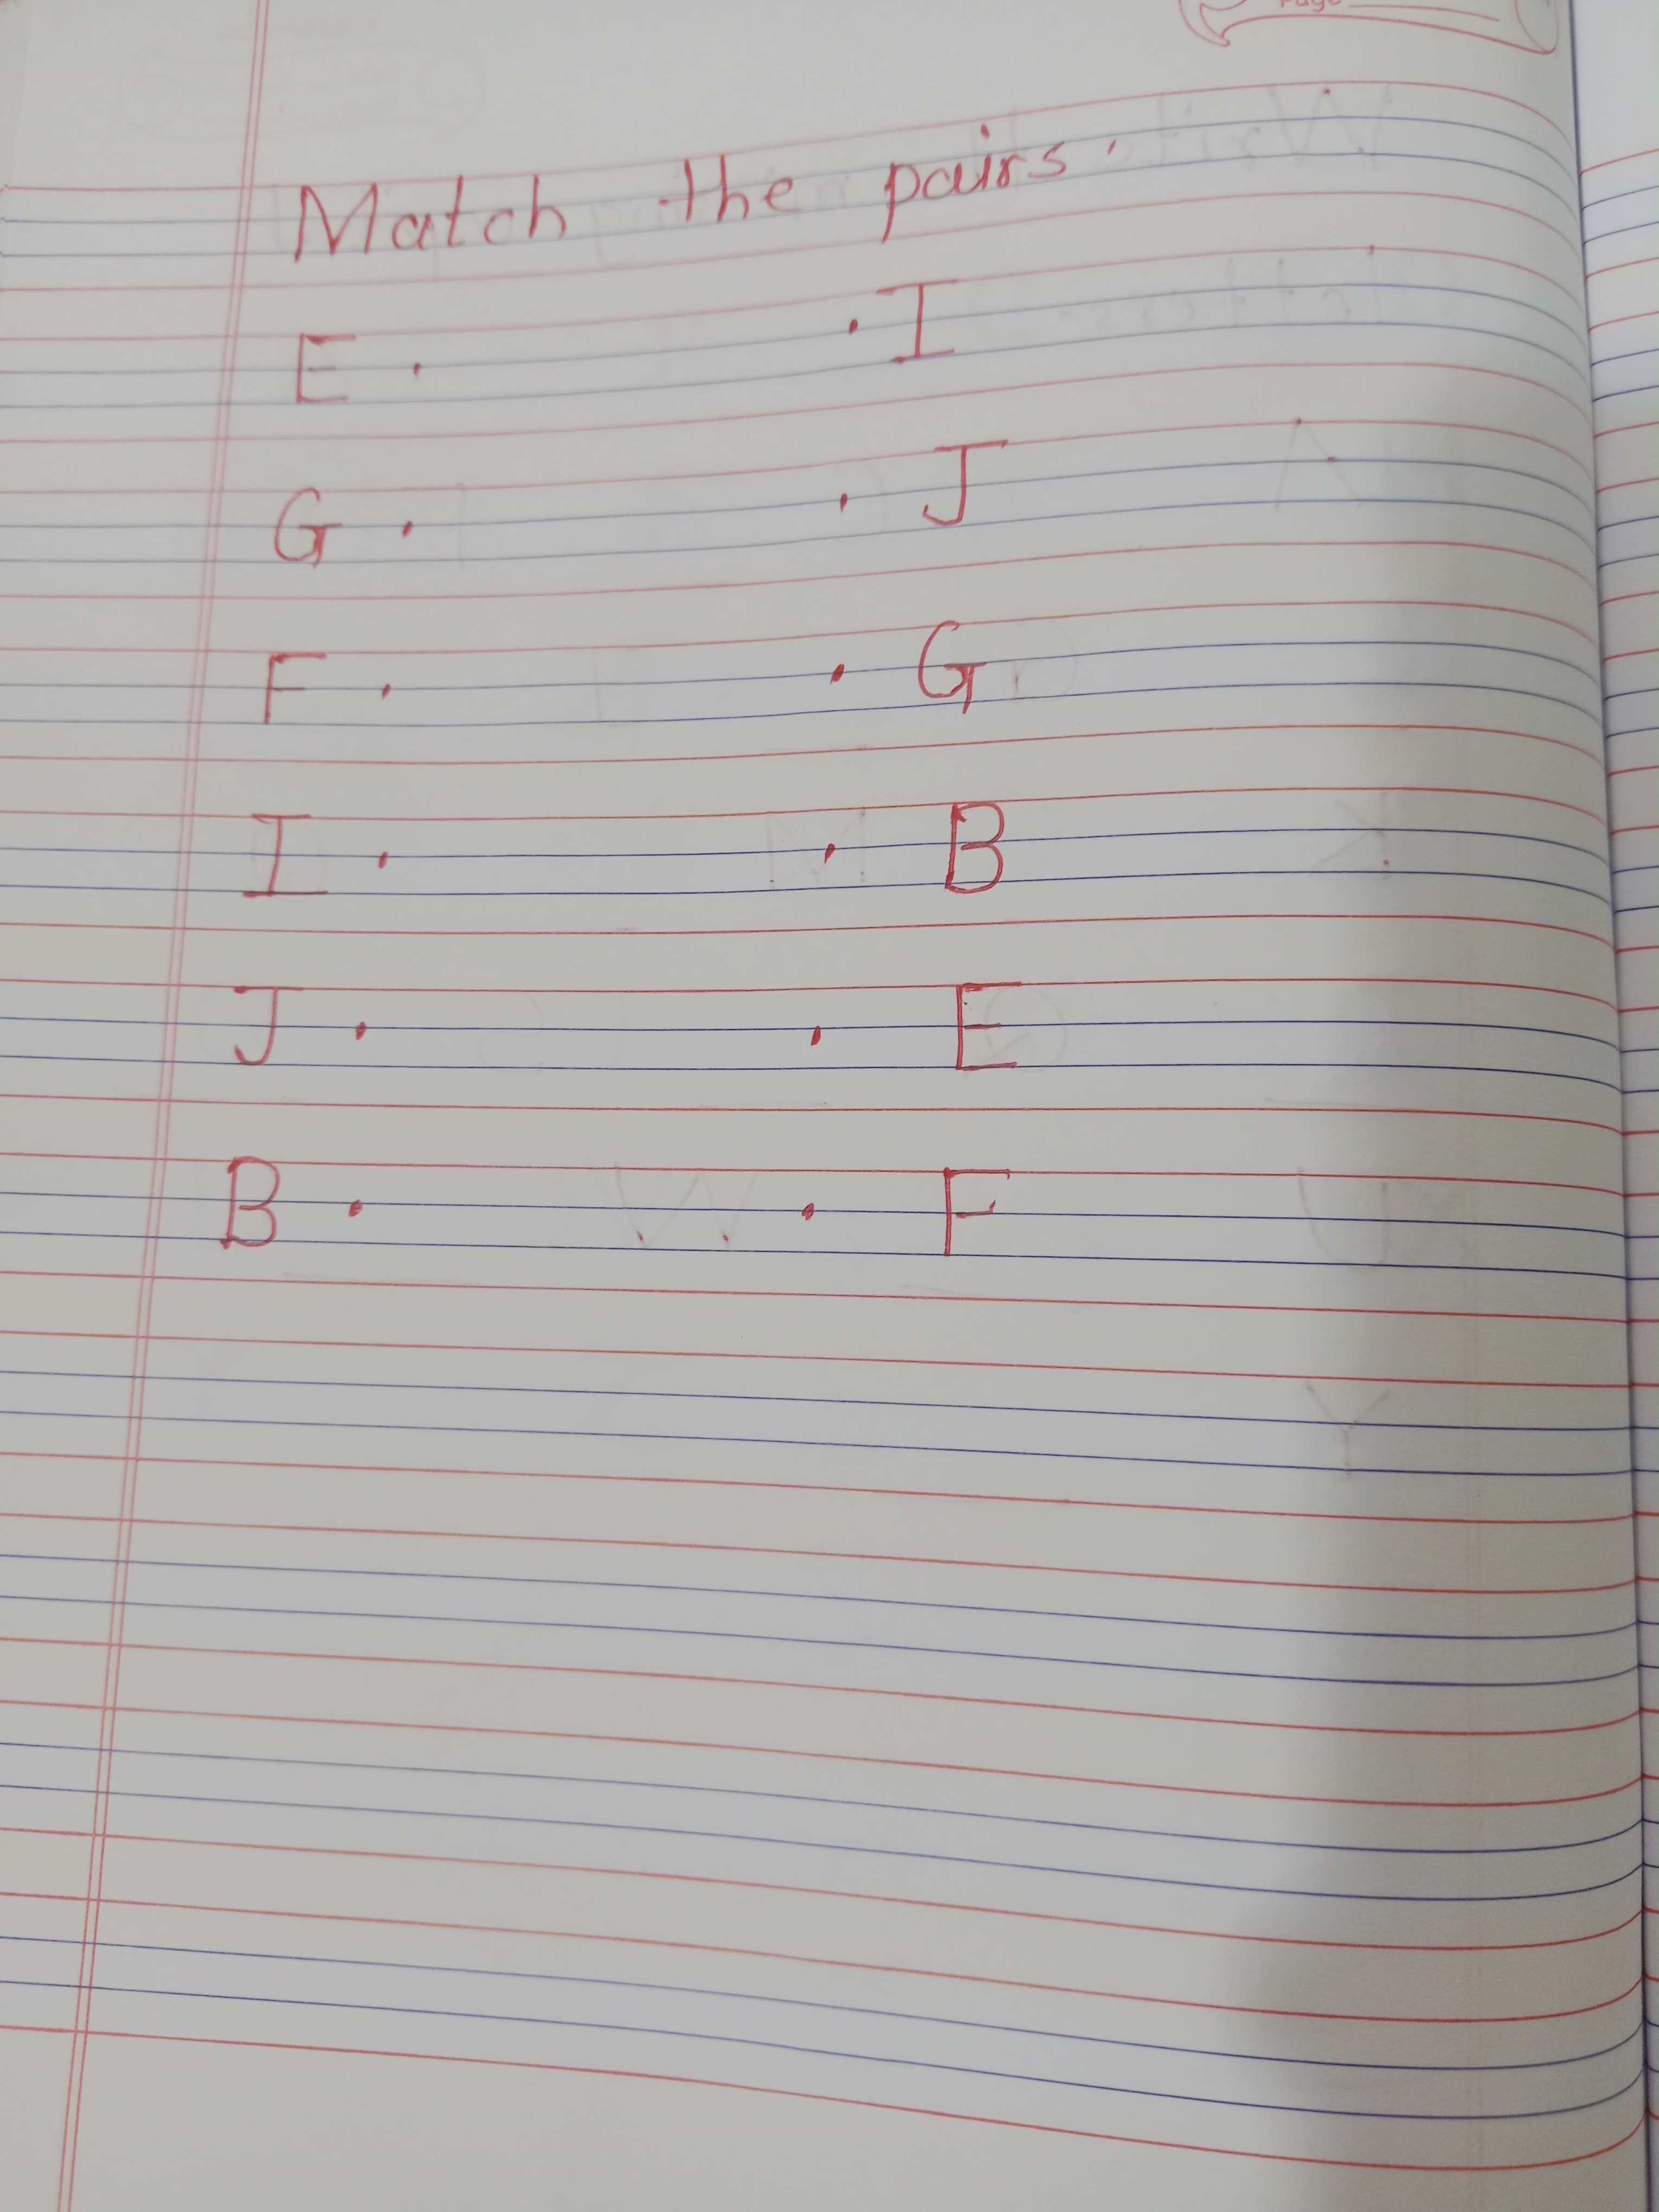 Page
Match the pairs.
E . . I
G . . J
F . . G
I . . B
J . . E
B . . F